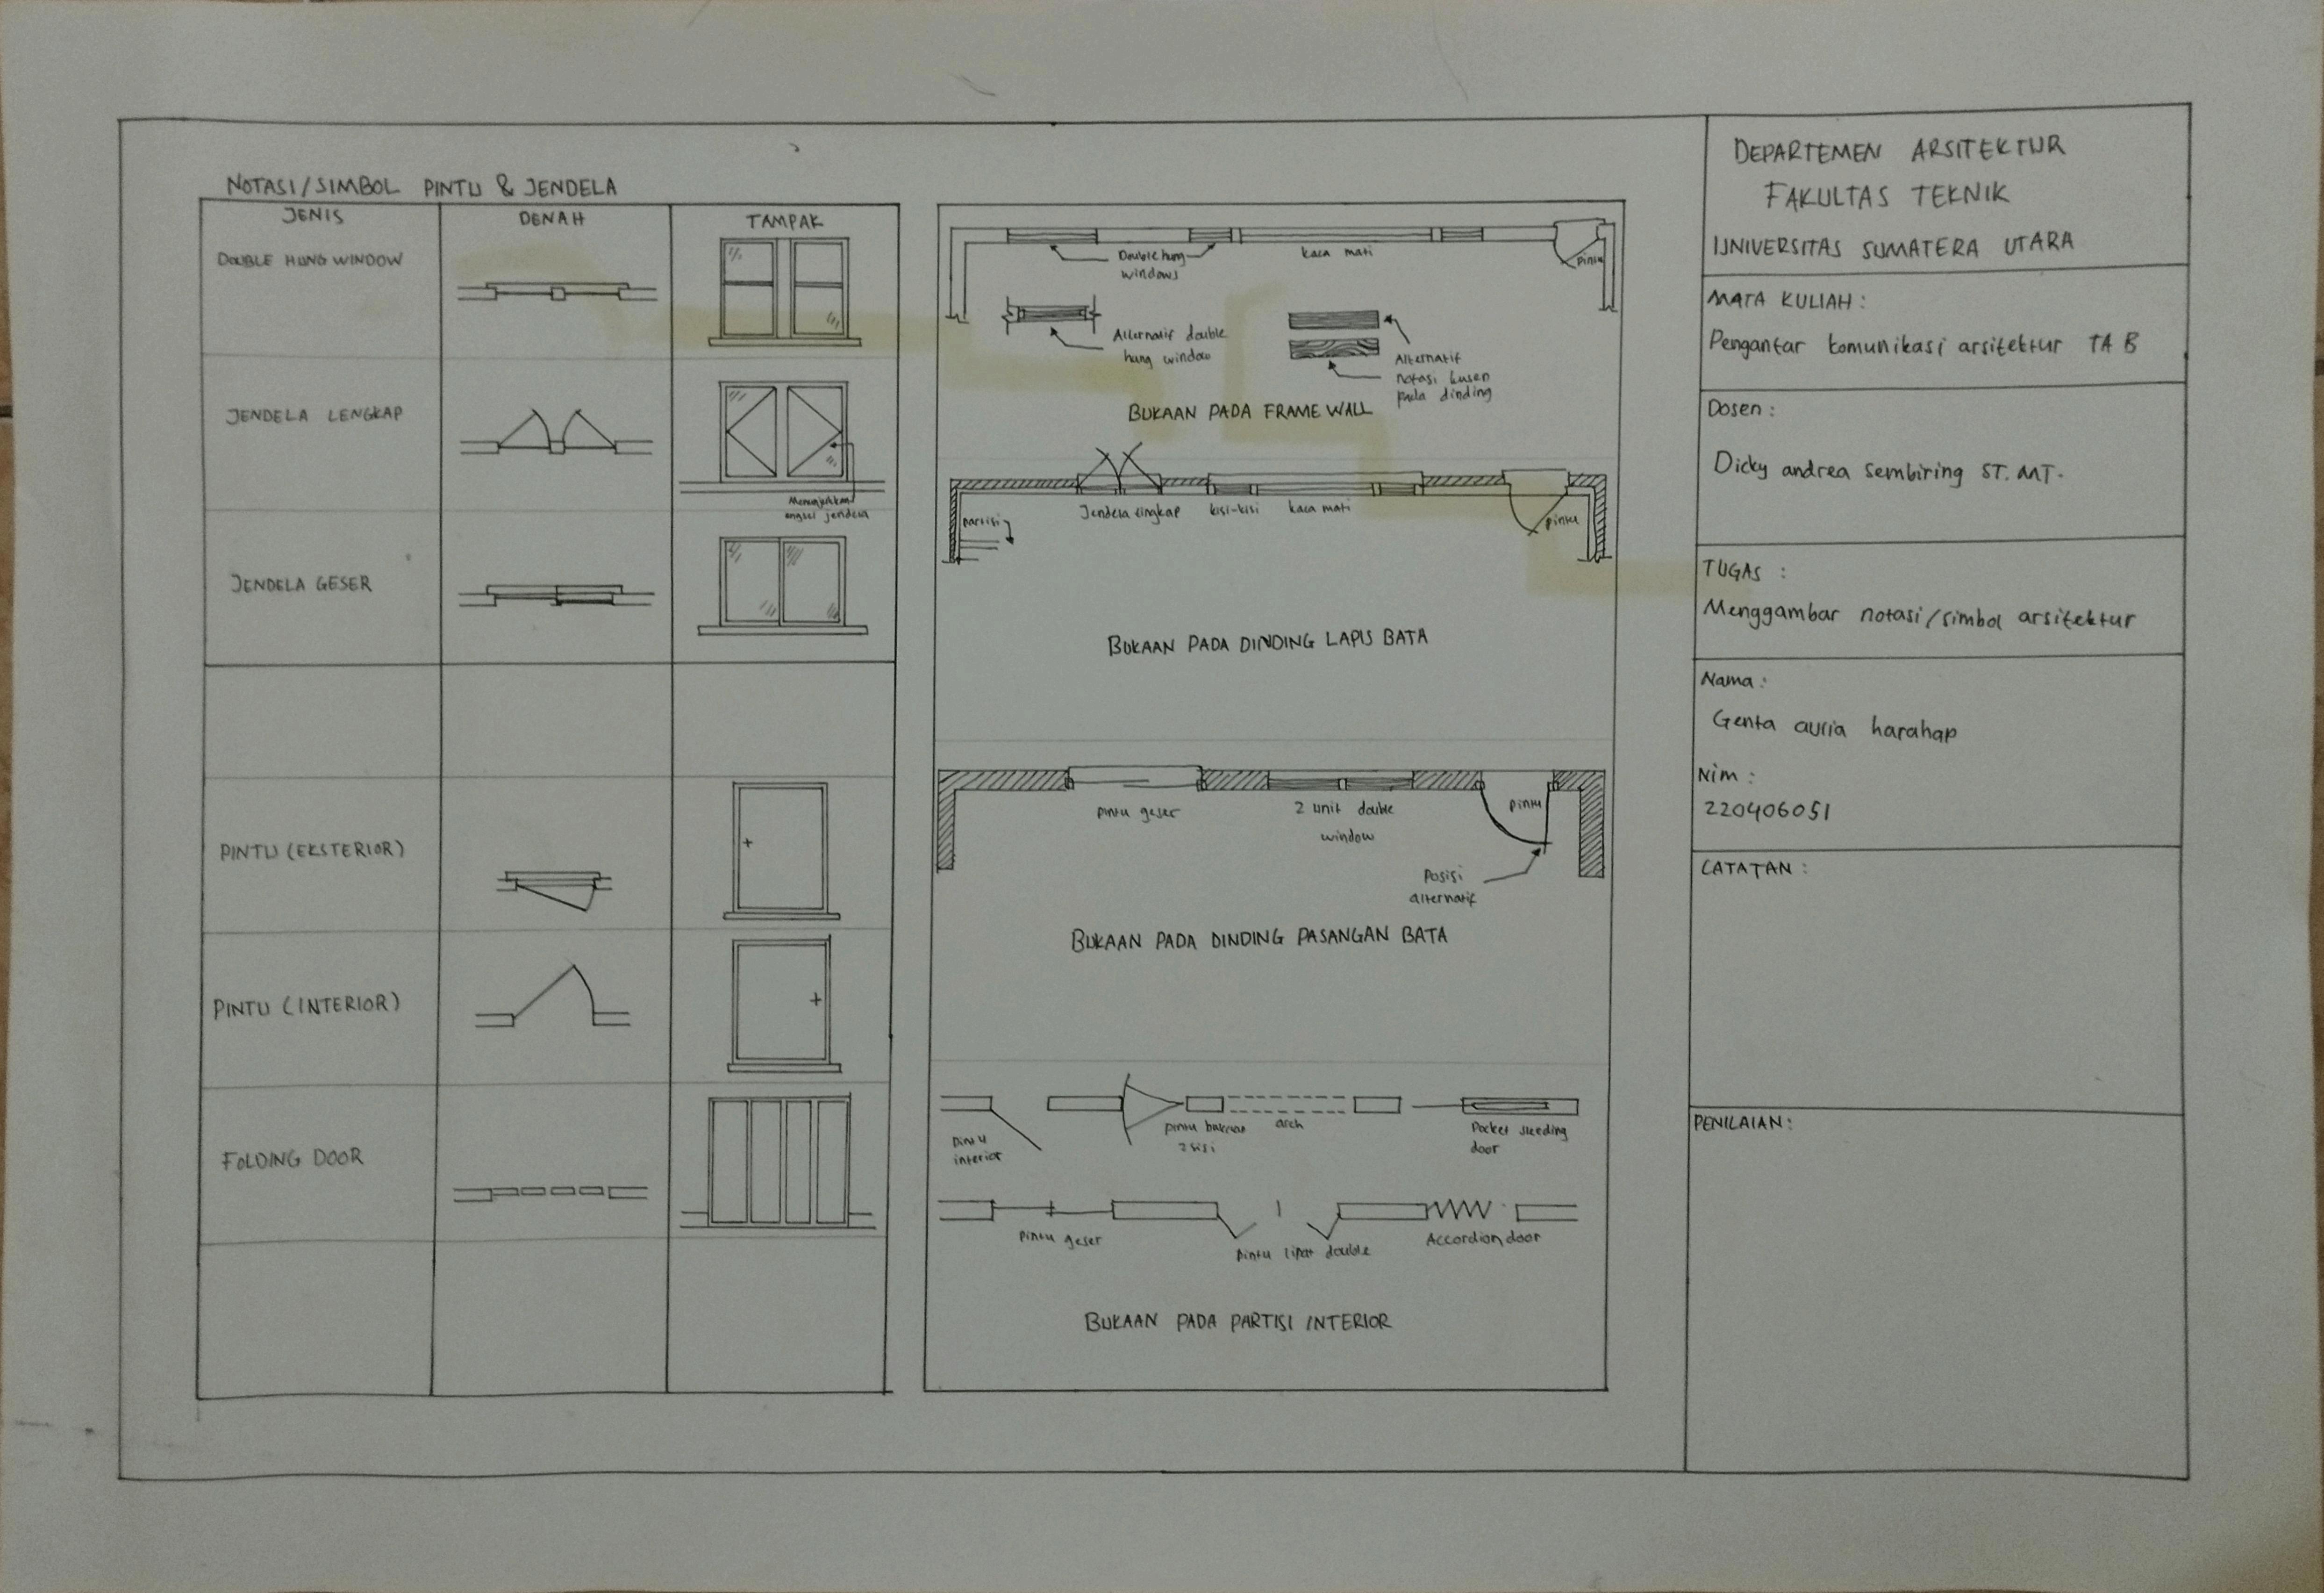 NOTASI/SIMBOL PINTU & JENDELA
JENIS
DENAH
TAMPAK
DOUBLE HUNG WINDOW
JENDELA LENGKAP
Menunjukkan
engsel jendela
JENDELA GESER
PINTU (EKSTERIOR)
PINTU (INTERIOR)
FOLDING DOOR
Double hung
windows
kaca mati
pintu
Alternatif double
hung window
Alternatif
notasi kusen
pada dinding
BUKAAN PADA FRAME WALL
partisi
Jendela lingkap
kisi-kisi
kaca mati
pintu
BUKAAN PADA DINDING LAPIS BATA
pintu geser
2 unit double
window
pintu
Posisi
alternatif
BUKAAN PADA DINDING PASANGAN BATA
pintu
interior
pintu bukaan
2 sisi
arch
Pocket sleeding
door
pintu geser
pintu lipat double
Accordion door
BUKAAN PADA PARTISI INTERIOR
DEPARTEMEN ARSITEKTUR
FAKULTAS TEKNIK
UNIVERSITAS SUMATERA UTARA
MATA KULIAH :
Pengantar komunikasi arsitektur TA B
Dosen :
Dicky andrea Sembiring ST. MT.
TUGAS :
Menggambar notasi/simbol arsitektur
Nama :
Genta auria harahap
Nim :
220406051
CATATAN :
PENILAIAN :